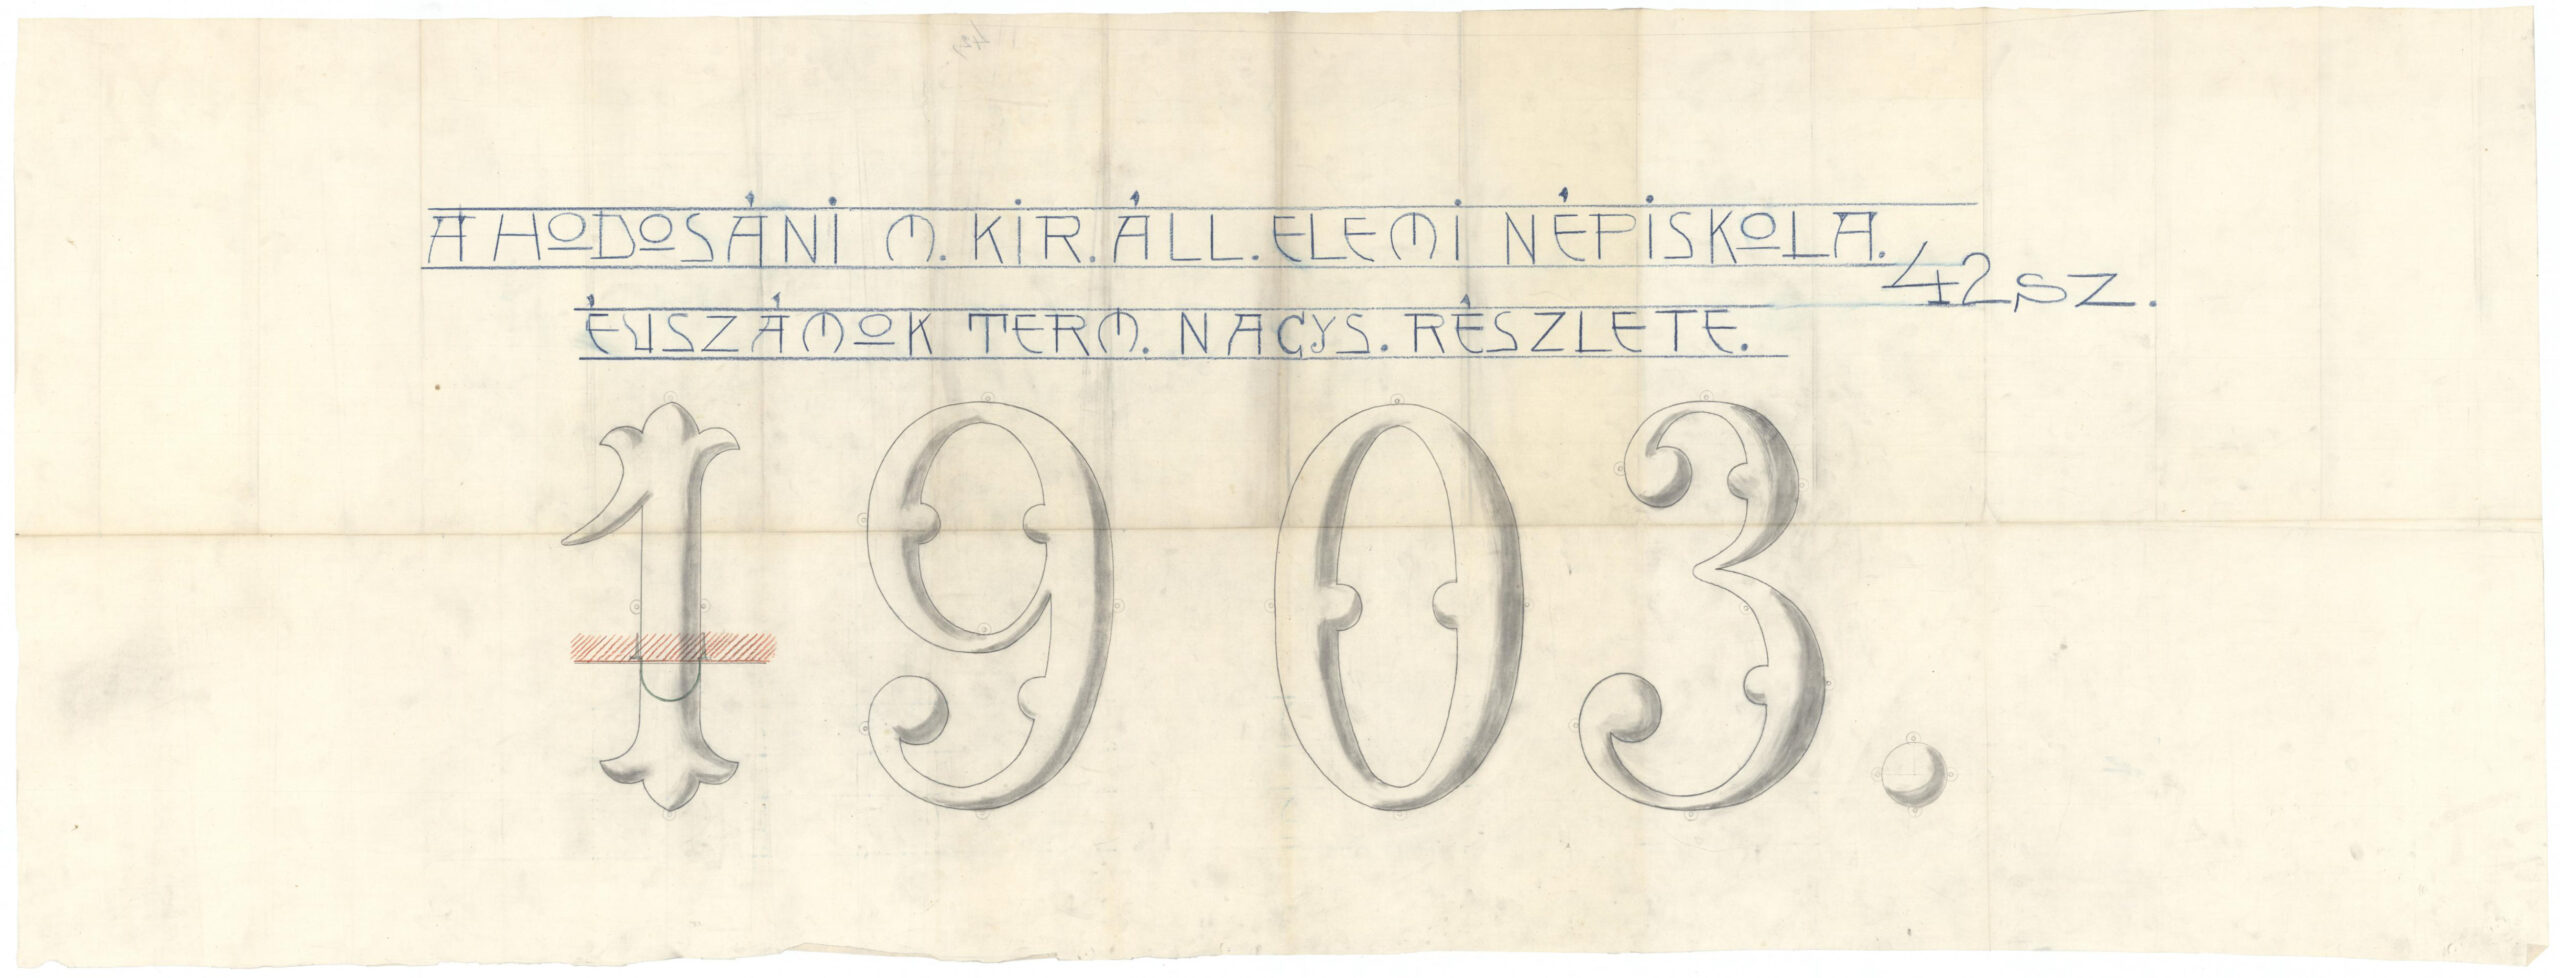 A HODOSÁNI M. KIR. ÁLL. ELEMI NÉPISKOLA.
42, SZ.
ÉVSZÁMOK TERM. NAGYS. RÉSZLETE.
1903.
42,